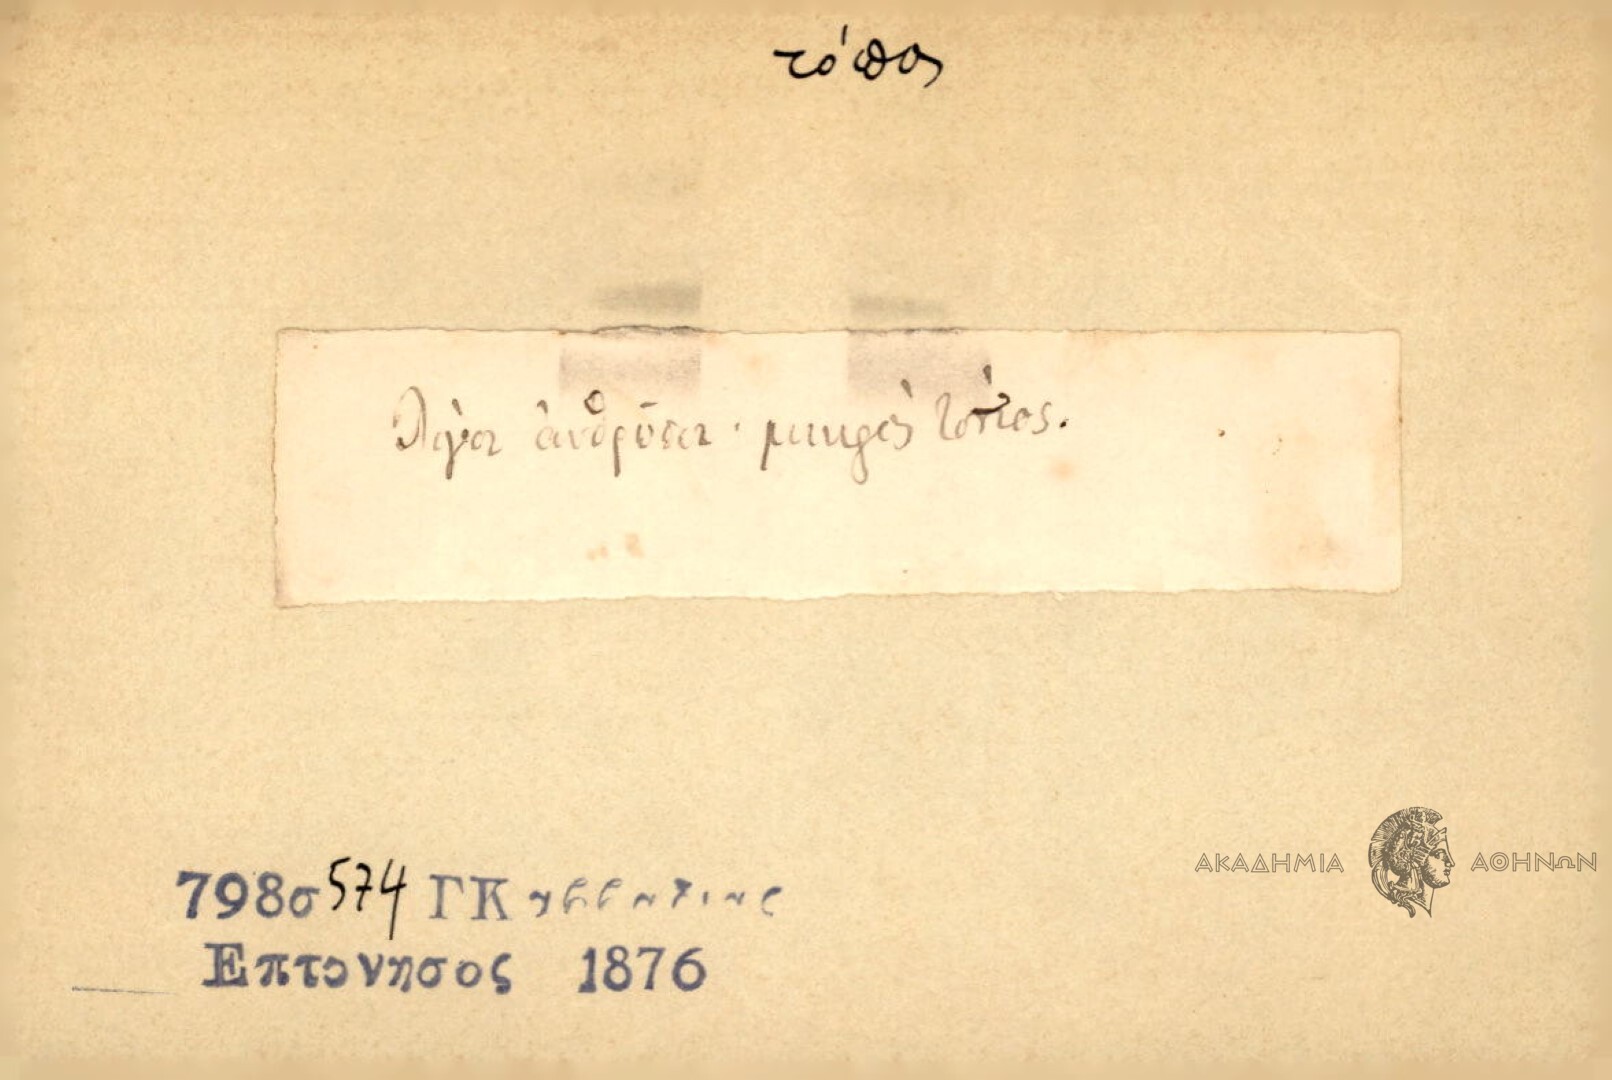 τόπος
Λίγοι ἀνθρῶποι · μικρὸς τόπος.
798σ 574 ΓΚ
Επτονησος 1876
ΑΚΑΔΗΜΙΑ ΑΘΗΝΩΝ